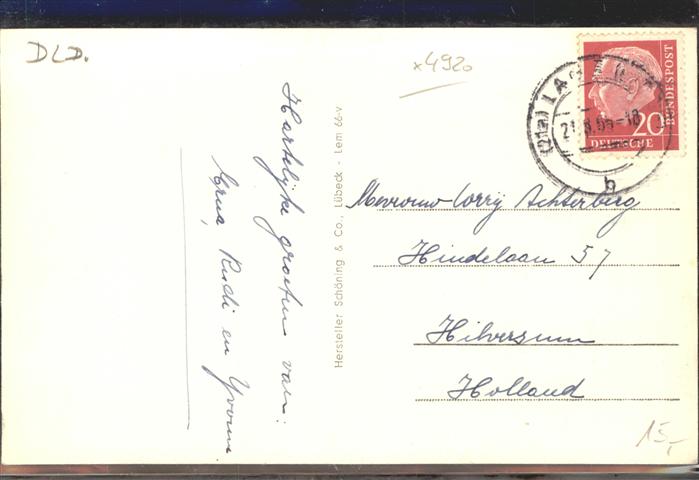 DLD.
x4920
Hartelijke groeten van:
Erna, Rudi en Yvonne
Hersteller Schöning & Co., Lübeck - Lem 66-v
(21a) LA
21.8.56-18
b
20
DEUTSCHE
BUNDESPOST
Mevrouw Corrij Achterberg
Hindelaan 57
Hilversum
Holland
15,-